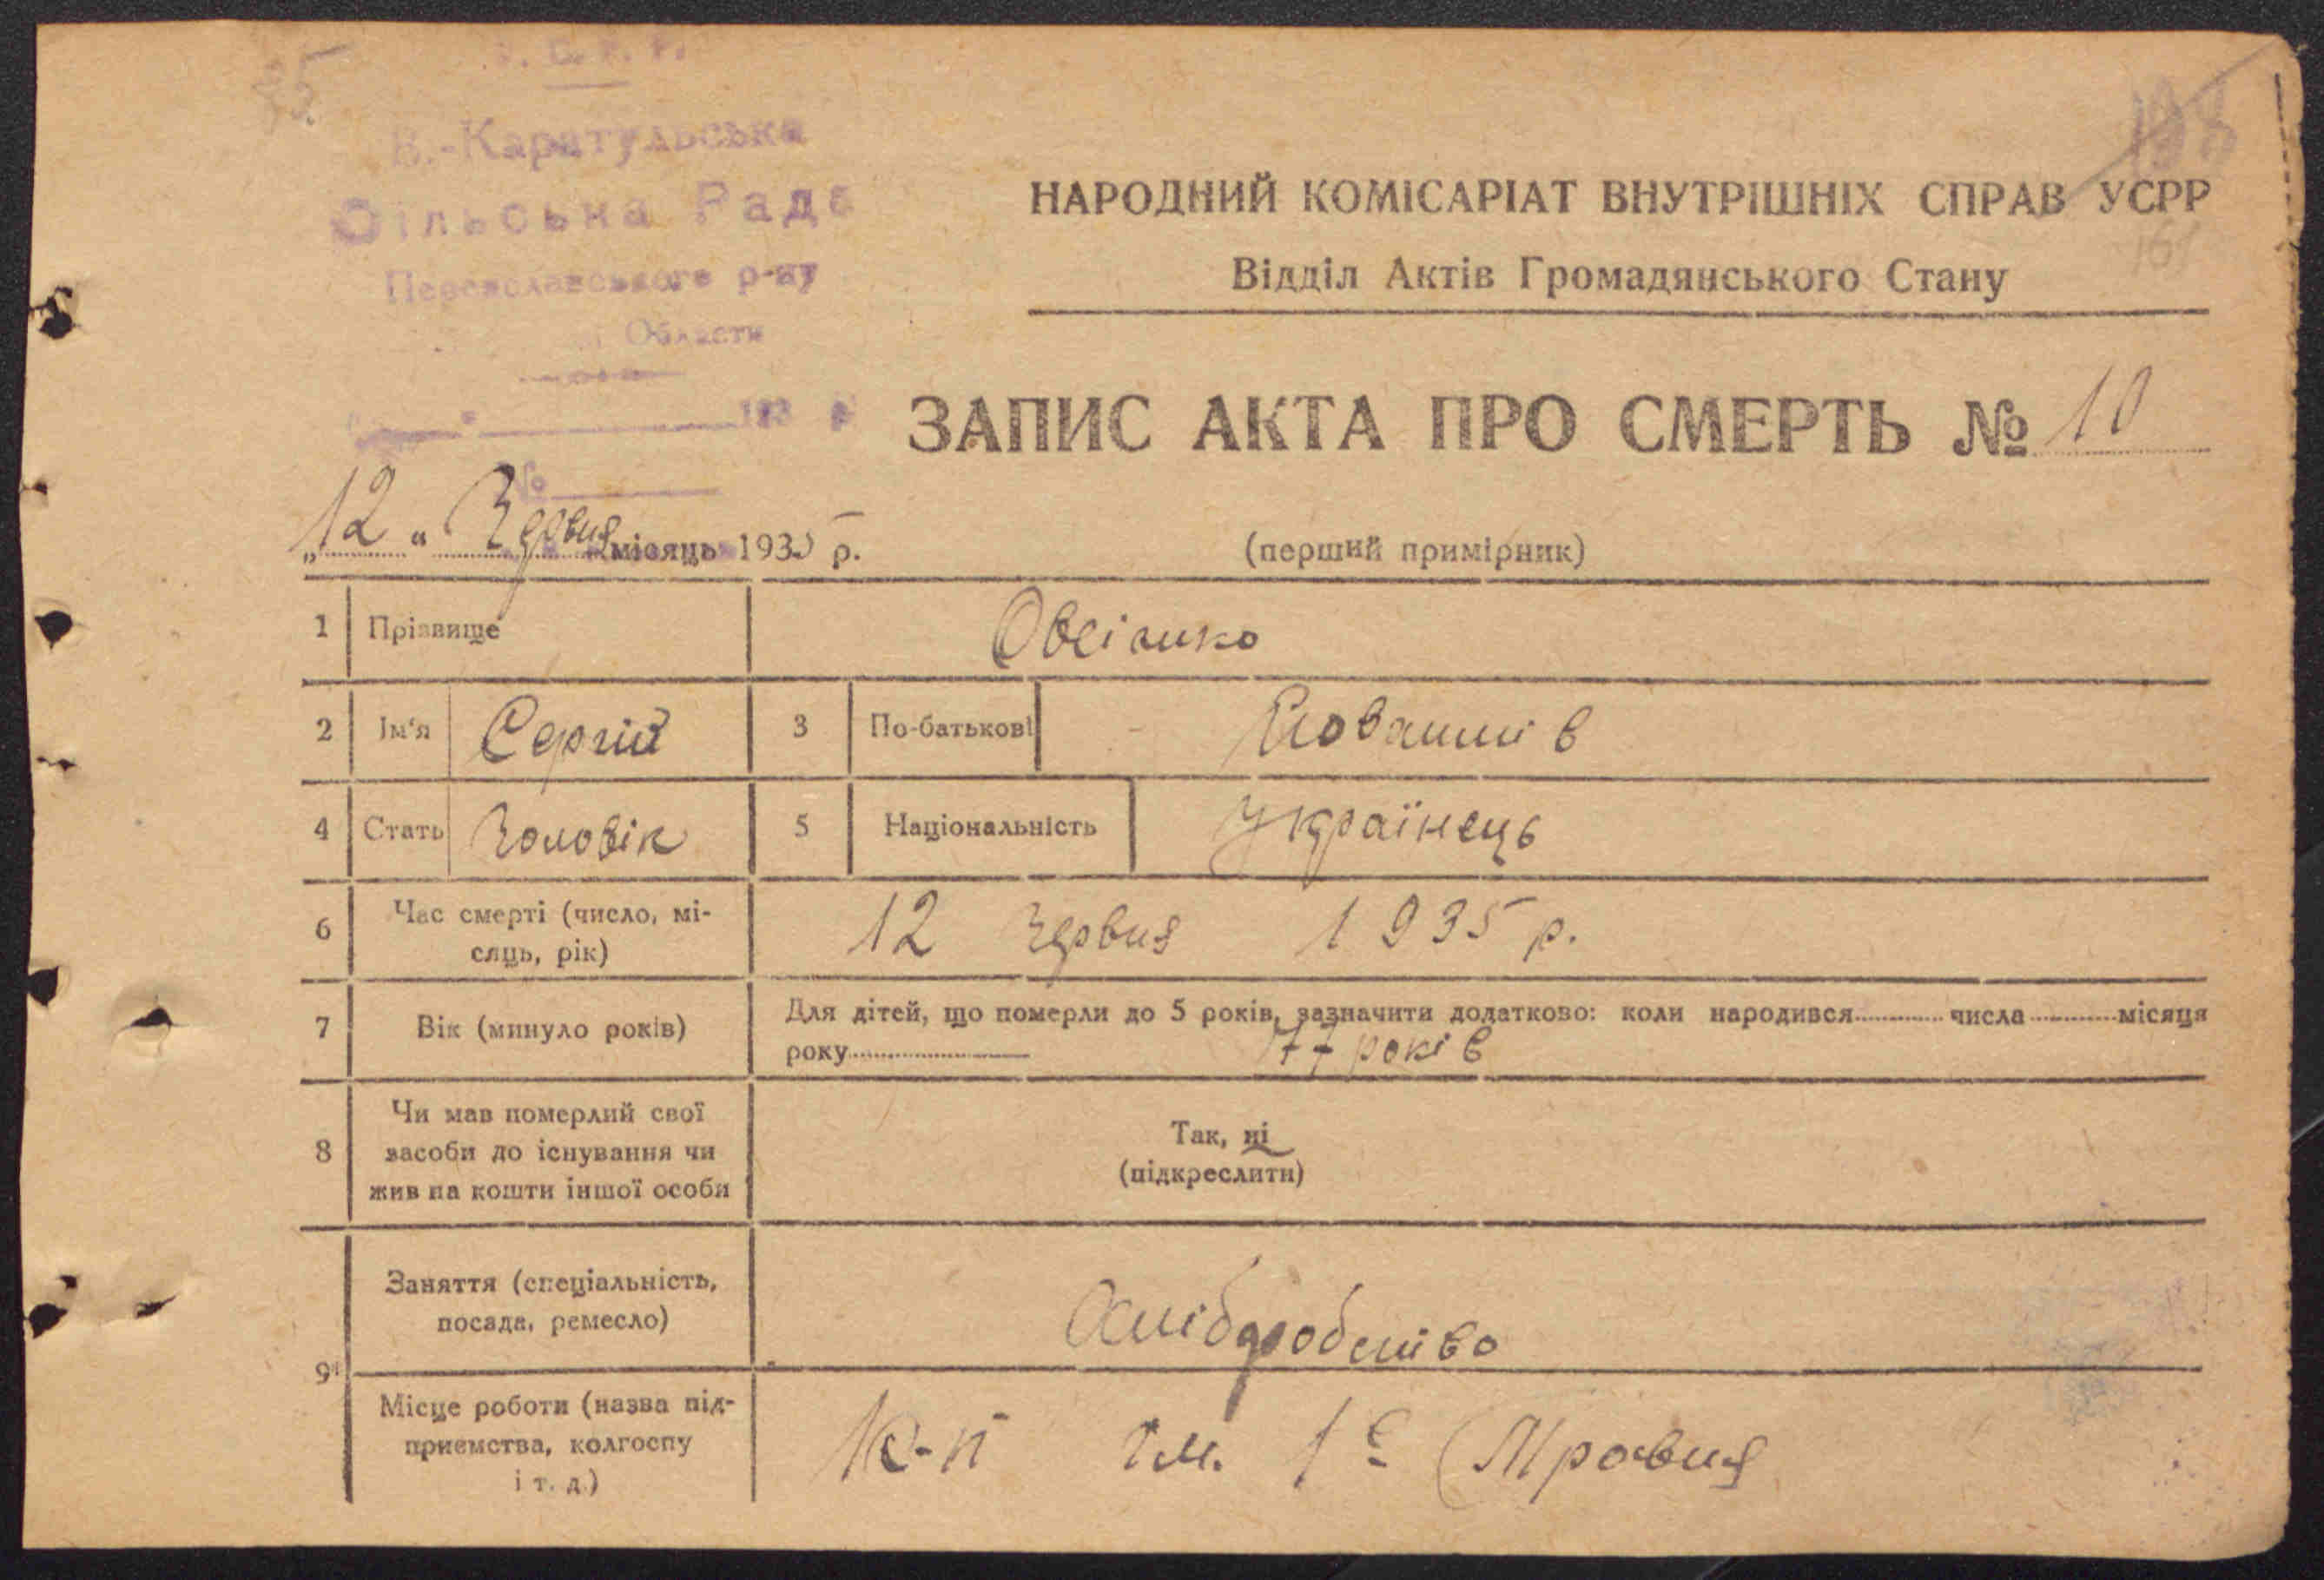 У. С. Р. Р.
В.-Каратульська
Сільська Рада
Переяславського р-ну
Области
193 р.
№
198
161
НАРОДНИЙ КОМІСАРІАТ ВНУТРІШНІХ СПРАВ УСРР
Відділ Актів Громадянського Стану
ЗАПИС АКТА ПРО СМЕРТЬ № 10
„12“ Червня місяць 1935 р.
(перший примірник)
1 Прізвище Овсіинко
2 Ім'я Сергій 3 По-батькові Йованнів
4 Стать Чоловік 5 Національність Українець
6 Час смерті (число, мі-
сяць, рік) 12 Червня 1935 р.
7 Вік (минуло років) Для дітей, що померли до 5 років, зазначити додатково: коли народився числа місяця
року 77 років
8 Чи мав померлий свої
засоби до існування чи
жив на кошти іншої особи
Так, ні
(підкреслити)
9 Заняття (спеціальність,
посада, ремесло) Хліборобство
Місце роботи (назва під-
приємства, колгоспу
і т. д.) К-п Ім. 1е Травня